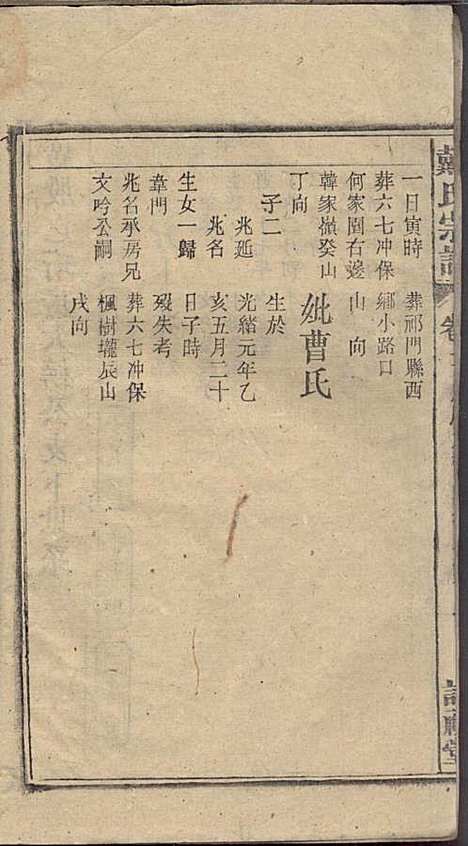 戴氏宗譜
一日寅時
葬六七冲保
何家園右邊
韓家嶺癸山
丁向
子二
兆延
兆名
生女一歸
章門
兆名承房兄
文吟公嗣
葬祁門縣西
鄉小路口
山向
妣曹氏
生於
光緒元年乙
亥五月二十
日子時
歿失考
葬六七冲保
楓樹壠辰山
戌向